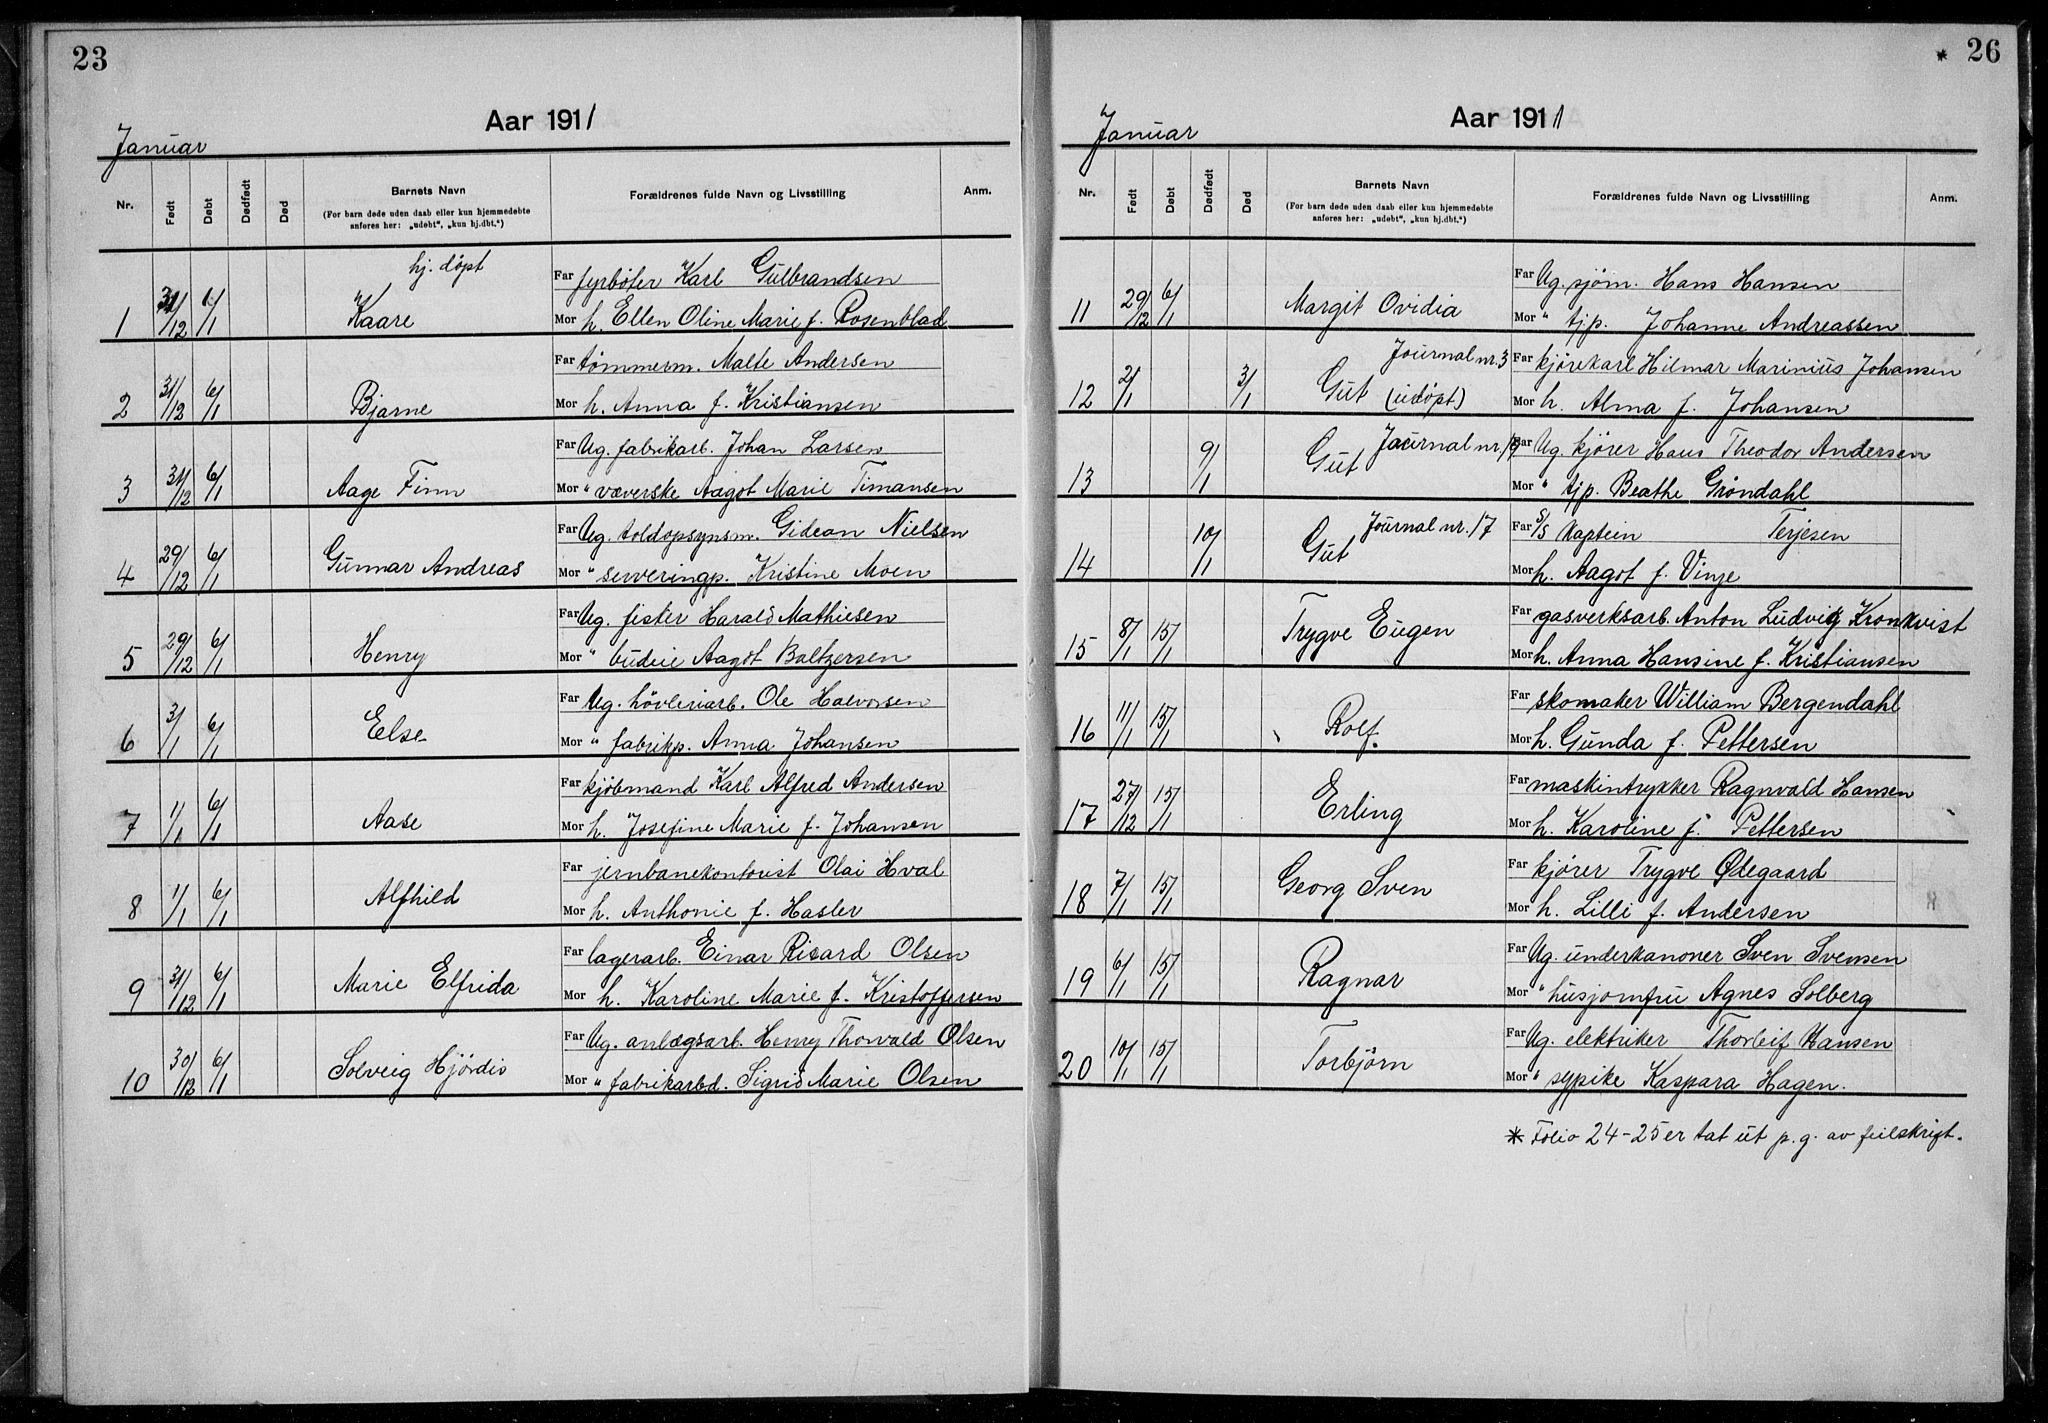 23
Aar 1911
Januar
Nr. Født Døbt Dødfødt Død Barnets Navn Forældrenes fulde Navn og Livsstilling Anm.
(For barn døde uden daab eller kun hjemmedøbte
anføres her: „udøbt“, „kun hj.dbt.“)
hj. döpt Far fyrböter Karl Gulbrandsen
1 31/12 1/1 Kaare Mor h. Ellen Oline Marie f. Rosenblad
Far tömmerm. Malte Andersen
2 31/12 6/1 Bjarne Mor h. Anna f. Kristiansen
Far Ug. fabrikarb. Johan Larsen
3 31/12 6/1 Aage Finn Mor " væverske Aagot Marie Timansen
Far Ug. toldopsynsm. Gidean Nielsen
4 29/12 6/1 Gunnar Andreas Mor " serveringp. Kristine Moen
Far Ug. fisker Harald Mathiesen
5 29/12 6/1 Henry Mor " budeie Aagot Baltzersen
Far Ug. hövleriarb. Ole Halvorsen
6 3/1 6/1 Else Mor " fabrikp. Anna Johansen
Far kjöbmand Karl Alfred Andersen
7 1/1 6/1 Aase Mor h. Josefine Marie f. Johansen
Far jernbanekontorist Olai Hval
8 1/1 6/1 Alfhild Mor h. Anthonie f. Hasler
Far lagerarb. Einar Ricard Olsen
9 31/12 6/1 Marie Elfrida Mor h. Karoline Marie f. Kristoffersen
Far Ug. anlægsarb. Henry Thorvald Olsen
10 30/12 6/1 Solveig Hjördis Mor " fabrikarbd. Sigrid Marie Olsen
* 26
Aar 1911
Januar
Nr. Født Døbt Dødfødt Død Barnets Navn Forældrenes fulde Navn og Livsstilling Anm.
(For barn døde uden daab eller kun hjemmedøbte
anføres her: „udøbt“, „kun hj.dbt.“)
Far Ug. sjöm. Hans Hansen
11 29/12 6/1 Margit Ovidia Mor " tjp. Johanne Andreassen
Journal nr. 3 Far kjörekarl Hilmar Marinius Johansen
12 2/1 3/1 Gut (udöpt) Mor h. Alma f. Johansen
Journal nr. 19 Far Ug. kjörer Hans Theodor Andersen
13 9/1 Gut Mor " tjp. Beathe Gröndahl
Journal nr. 17 Far S/S Kaptein Terjesen
14 10/1 Gut Mor h. Aagot f. Vinje
Far gasverksarb. Anton Ludvig Kronkvist
15 8/1 15/1 Trygve Eugen Mor h. Anna Hansine f. Kristiansen
Far skomaker William Bergendahl
16 11/1 15/1 Rolf. Mor h. Gunda f. Pettersen
Far maskintrykker Ragnvald Hansen
17 27/12 15/1 Erling Mor h. Karoline f. Pettersen
Far kjörer Trygve Ødegaard
18 7/1 15/1 Georg Sven Mor h. Lilli f. Andersen
Far Ug. underkanoner Sven Svensen
19 6/1 15/1 Ragnar Mor " husjomfru Agnes Solberg
Far Ug. elektriker Thorleif Hansen
20 10/1 15/1 Torbjörn Mor " sypike Kaspara Hagen.
* Folio 24-25 er tat ut p.g. av feilskrift.